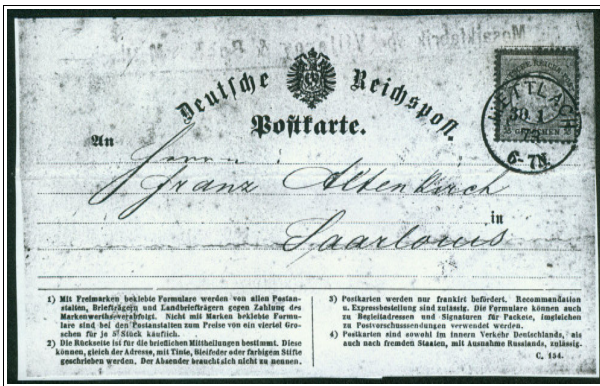 Mosaikfabrik von Villeroy & Boch
Deutsche Reichspost.
Postkarte.
METTLACH
30 1
73
6-7N.
GROSCHEN
An
Herrn
Franz Altenkirch
in
Saarlouis
1) Mit Freimarken beklebte Formulare werden von allen Postan-
stalten, Briefträgern und Landbriefträgern gegen Zahlung des
Markenwerthes verabfolgt. Nicht mit Marken beklebte Formu-
lare sind bei den Postanstalten zum Preise von ein viertel Gro-
schen für je 5 Stück käuflich.
2) Die Rückseite ist für die brieflichen Mittheilungen bestimmt. Diese
können, gleich der Adresse, mit Tinte, Bleifeder oder farbigem Stifte
geschrieben werden. Der Absender braucht sich nicht zu nennen.
3) Postkarten werden nur frankirt befördert. Recommandation
u. Expressbestellung sind zulässig. Die Formulare können auch
zu Begleitadressen und Signaturen für Packete, imgleichen
zu Postvorschusssendungen verwendet werden.
4) Postkarten sind sowohl im innern Verkehr Deutschlands, als
auch nach fremden Staaten, mit Ausnahme Russlands, zulässig.
C. 154.